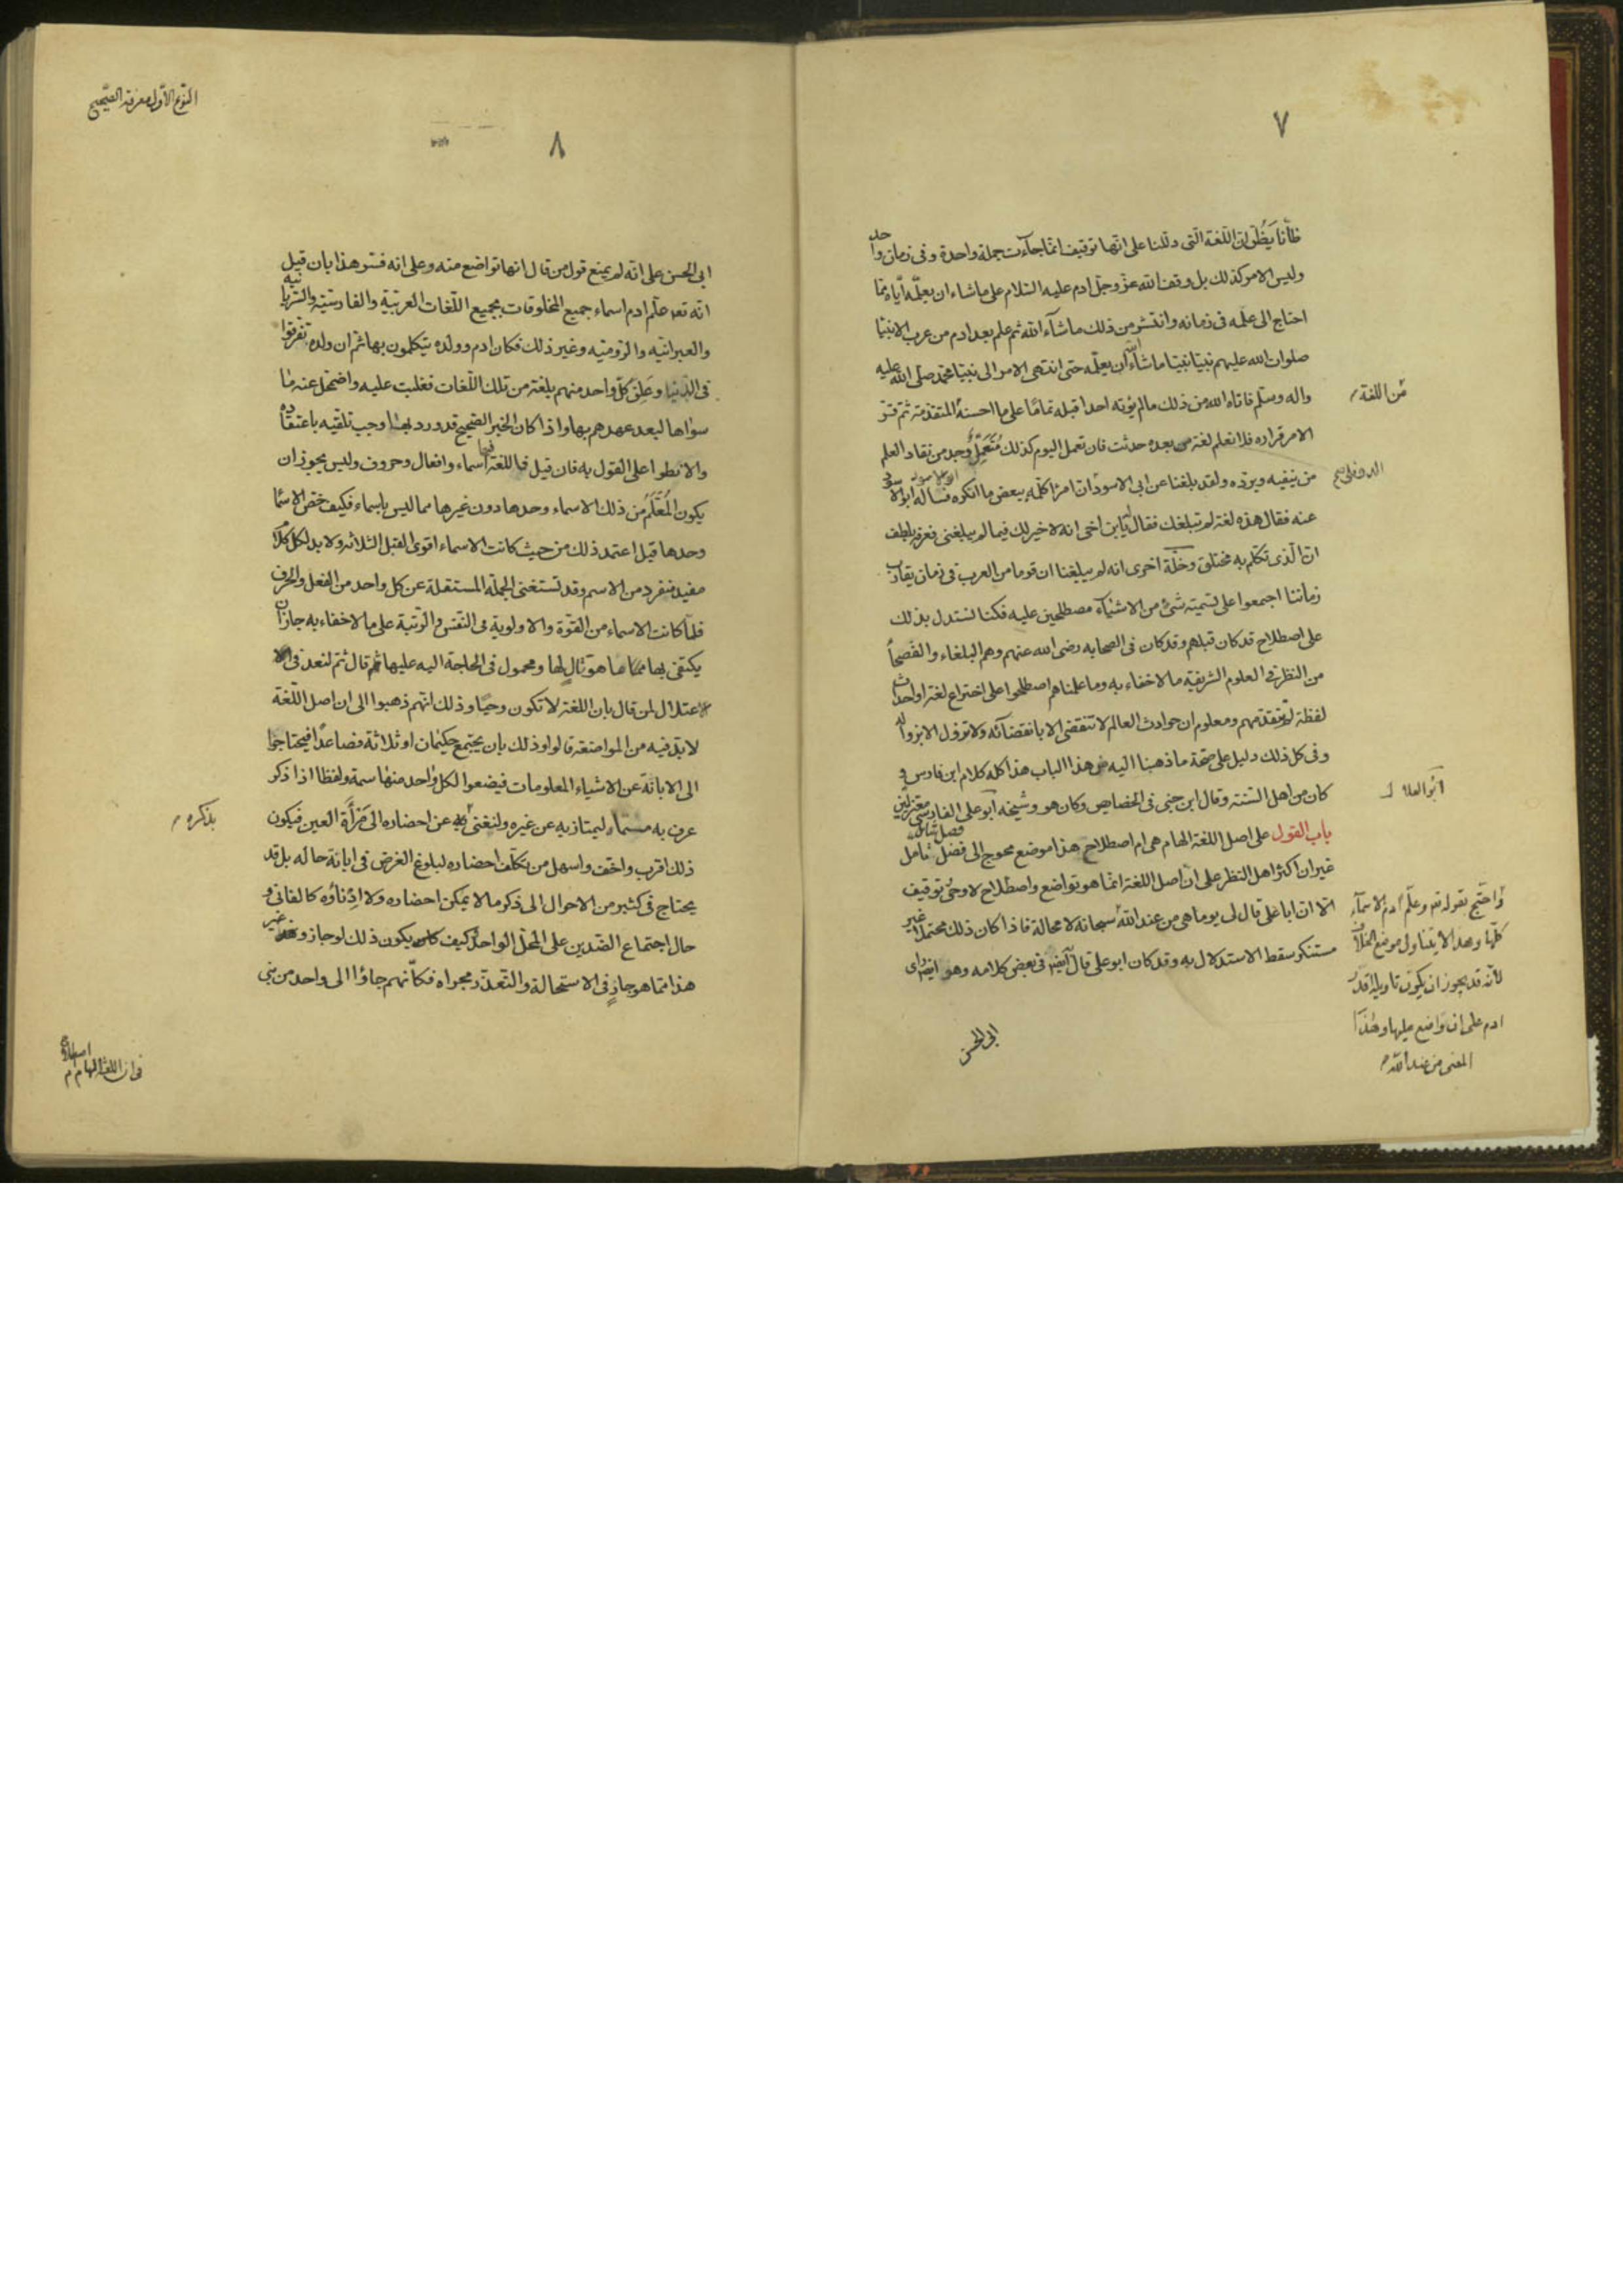 ٧
ظانا يظن ان اللغة التى دللنا على انها توقيف انما جاءت جملة واحدة وفى زمان واحد
وليس الامر كذلك بل وقف الله عز وجل ادم عليه السلام على ما شاء ان يعلمه اياه مما
احتاج الى علمه فى زمانه وانتشر من ذلك ما شاء الله ثم علم بعد ادم من عرب الانبيا
صلوات الله عليهم نبيا نبيا ما شاء الله ان يعلمه حتى انتهى الامر الى نبينا محمد صلى الله عليه
واله وسلم فاتاه الله من ذلك ما لم يؤته احدا قبله تماما على ما احسنه من اللغة المتقدمة ثم قر
الامر قراره فلا نعلم لغة من بعده حدثت فان تعمل اليوم كذلك متعمل وجد من نقاد العلم
من ينفيه ويرده ولقد بلغنا عن ابى الاسود الدؤلى ان امرأ كلمه ببعض ما انكره فسأله ابو الاسود
عنه فقال هذه لغة لم تبلغك فقال يا ابن اخى انه لا خير لك فيما لم يبلغنى فعرفه بلطف
ان الذى تكلم به مختلق وخلة اخرى انه لم يبلغنا ان قوما من العرب فى زمان يقارب
زماننا اجمعوا على تسمية شئ من الاشياء مصطلحين عليه فكنا نستدل بذلك
على اصطلاح قد كان قبلهم وقد كان فى الصحابه رضى الله عنهم وهم البلغاء والفصحا
من النظر فى العلوم الشريفة ما لا خفاء به وما علمناهم اصطلحوا على اختراع لغة او احداث
لفظة لم تتقدمهم ومعلوم ان حوادث العالم لا تنقضى الا بانقضائه ولا تزول الا بزواله
وفى كل ذلك دليل على صحة ما ذهبنا اليه من هذا الباب هذا كله كلام ابن فارس و
كان من اهل السنة وقال ابن جنى فى الخصايص وكان هو وشيخه ابو على الفارسى معتزليين
باب القول على اصل اللغة الهام هى ام اصطلاح هذا موضع محوج الى فضل تأمل
غير ان اكثر اهل النظر على ان اصل اللغة انما هو تواضع واصطلاح لا وحى وتوقيف
الا ان ابا على قال لى يوما هى من عند الله سبحانه لا محالة فاذا كان ذلك محتملا غير
مستنكر سقط الاستدلال به وقد كان ابو على قال ايضا فى بعض كلامه وهو ايضا راى
ابى الحسن
من اللغة
واحتج بقوله تعـ وعلم ادم الاسمآء
كلها وهذا لا يتناول موضع الخلاف
لأنه قد يجوز ان يكون تاويله اقدر
ادم على ان واضع عليها وهذا
المعنى من عند الله
٨
النوع الاول معرفة الصحيح
ابى الحسن على انه لم يمنع قول من قال انها تواضع منه وعلى انه فسر هذا بان قيل
انه تعـ علم ادم اسماء جميع المخلوقات بجميع اللغات العربية والفارسية والسريانية
والعبرانيه والروميه وغير ذلك فكان ادم وولده يتكلمون بها ثم ان ولده تفرقوا
فى الدنيا وعلق كل واحد منهم بلغة من تلك اللغات فغلبت عليه واضمحل عنه ما
سواها لبعد عهدهم بها واذا كان الخبر الصحيح قد ورد بهذا وجب تلقيه باعتقاده
والانطوا على القول به فان قيل فاللغة فيها اسماء وافعال وحروف وليس يجوز ان
يكون المعلم من ذلك الاسماء وحدها دون غيرها مما ليس باسماء فكيف خص الاسما
وحدها قيل اعتمد ذلك من حيث كانت الاسماء اقوى القبل الثلاثه ولا بد لكل كلام
مفيد منفرد من الاسم وقد تستغنى الجملة المستقلة عن كل واحد من الفعل والحرف
فلما كانت الاسماء من القوة والاولوية فى النفس والرتبة على ما لا خفاء به جاز ان
يكتفى بها مما هو تال لها ومحمول فى الحاجة اليه عليها ثم قال ثم لنعد فى
الاعتلال لمن قال بان اللغة لا تكون وحيا وذلك انهم ذهبوا الى ان اصل اللغة
لا بد فيه من المواضعة قالوا وذلك بان يجتمع حكيمان او ثلاثة فصاعدا فيحتاجوا
الى الابانة عن الاشياء المعلومات فيضعوا لكل واحد منها سمة ولفظا اذا ذكر
عرف به مسماه ليمتاز به عن غيره وليغنى بذكره عن احضاره الى مرآة العين فيكون
ذلك اقرب واخف واسهل من تكلف احضاره لبلوغ الغرض فى ابانة حاله بل قد
يحتاج فى كثير من الاحوال الى ذكر ما لا يمكن احضاره ولا ادناؤه كالفانى و
حال اجتماع الضدين على المحل الواحد كيف يكون ذلك لو جاز وغير
هذا مما هو جار فى الاستحالة والتعذر مجراه فكانهم جاؤا الى واحد من بنى
بذكره
فى ان اللغة الهام ام اصطلاح